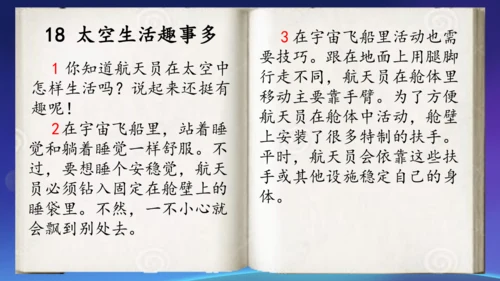 18 太空生活趣事多
1 你知道航天员在太空中
怎样生活吗？说起来还挺有
趣呢！
2在宇宙飞船里，站着睡
觉和躺着睡觉一样舒服。不
过，要想睡个安稳觉，航天
员必须钻入固定在舱壁上的
睡袋里。不然，一不小心就
会飘到别处去。
3 在宇宙飞船里活动也需
要技巧。跟在地面上用腿脚
行走不同，航天员在舱体里
移动主要靠手臂。为了方便
航天员在舱体中活动，舱壁
上安装了很多特制的扶手。
平时，航天员会依靠这些扶
手或其他设施稳定自己的身
体。